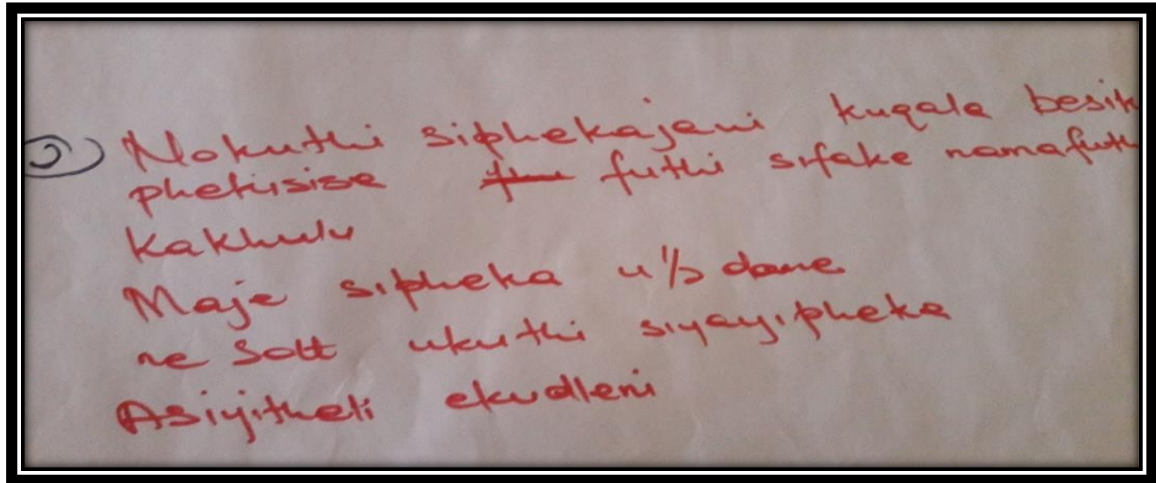 Nokuthi siphekajani kuqala besik
phekisise futhi sifake namafuth
kakhulu
Maje sipheka u 1/2 done
ne Solt ukuthi siyayipheke
Asiyitheli ekudleni